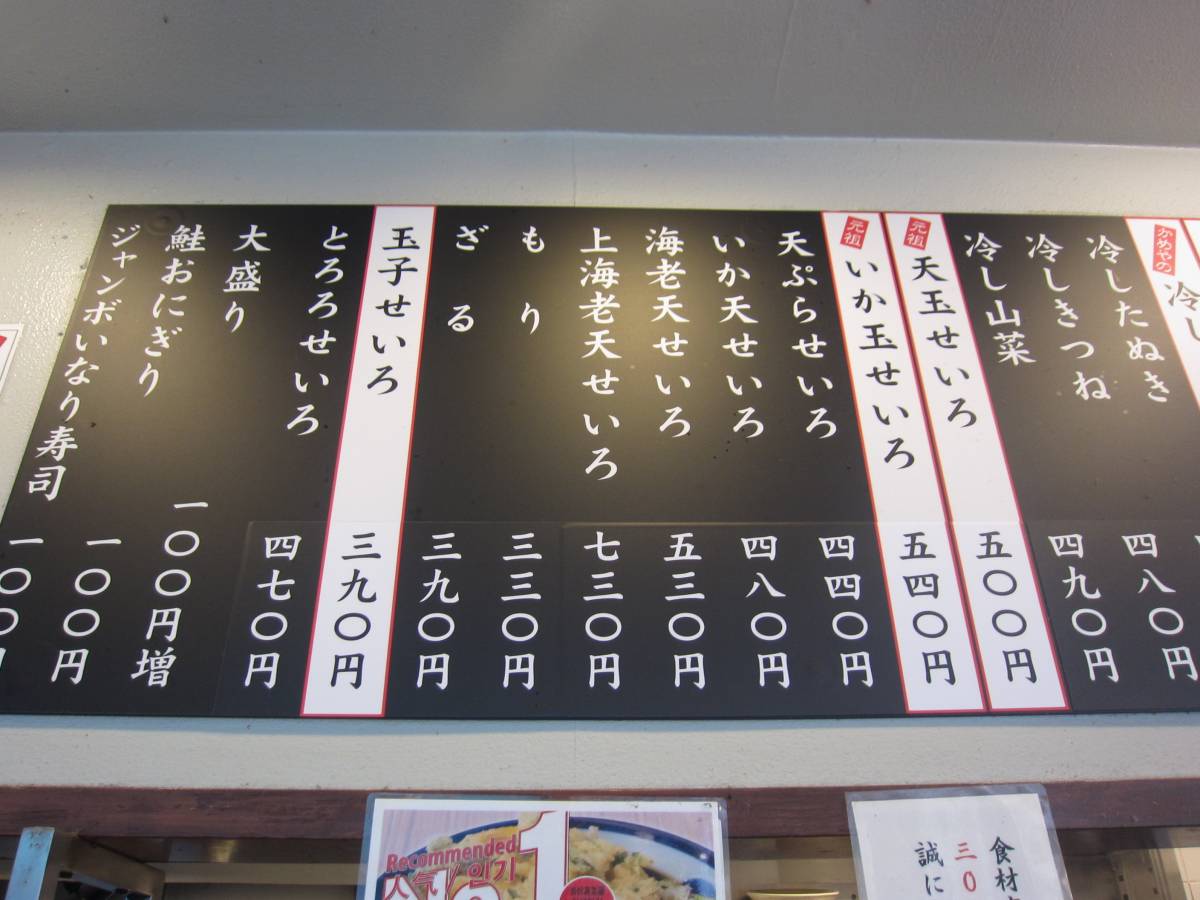 かめやの
冷し
冷したぬき
冷しきつね 四八〇円
冷し山菜 四九〇円
元祖 天玉せいろ 五〇〇円
元祖 いか玉せいろ 五四〇円
天ぷらせいろ 四四〇円
いか天せいろ 四八〇円
海老天せいろ 五三〇円
上海老天せいろ 七三〇円
もり 三三〇円
ざる 三九〇円
玉子せいろ 三九〇円
とろろせいろ 四七〇円
大盛り 一〇〇円増
鮭おにぎり 一〇〇円
ジャンボいなり寿司 一〇〇円
Recommended
人気/인기
1
食材
三〇
誠に